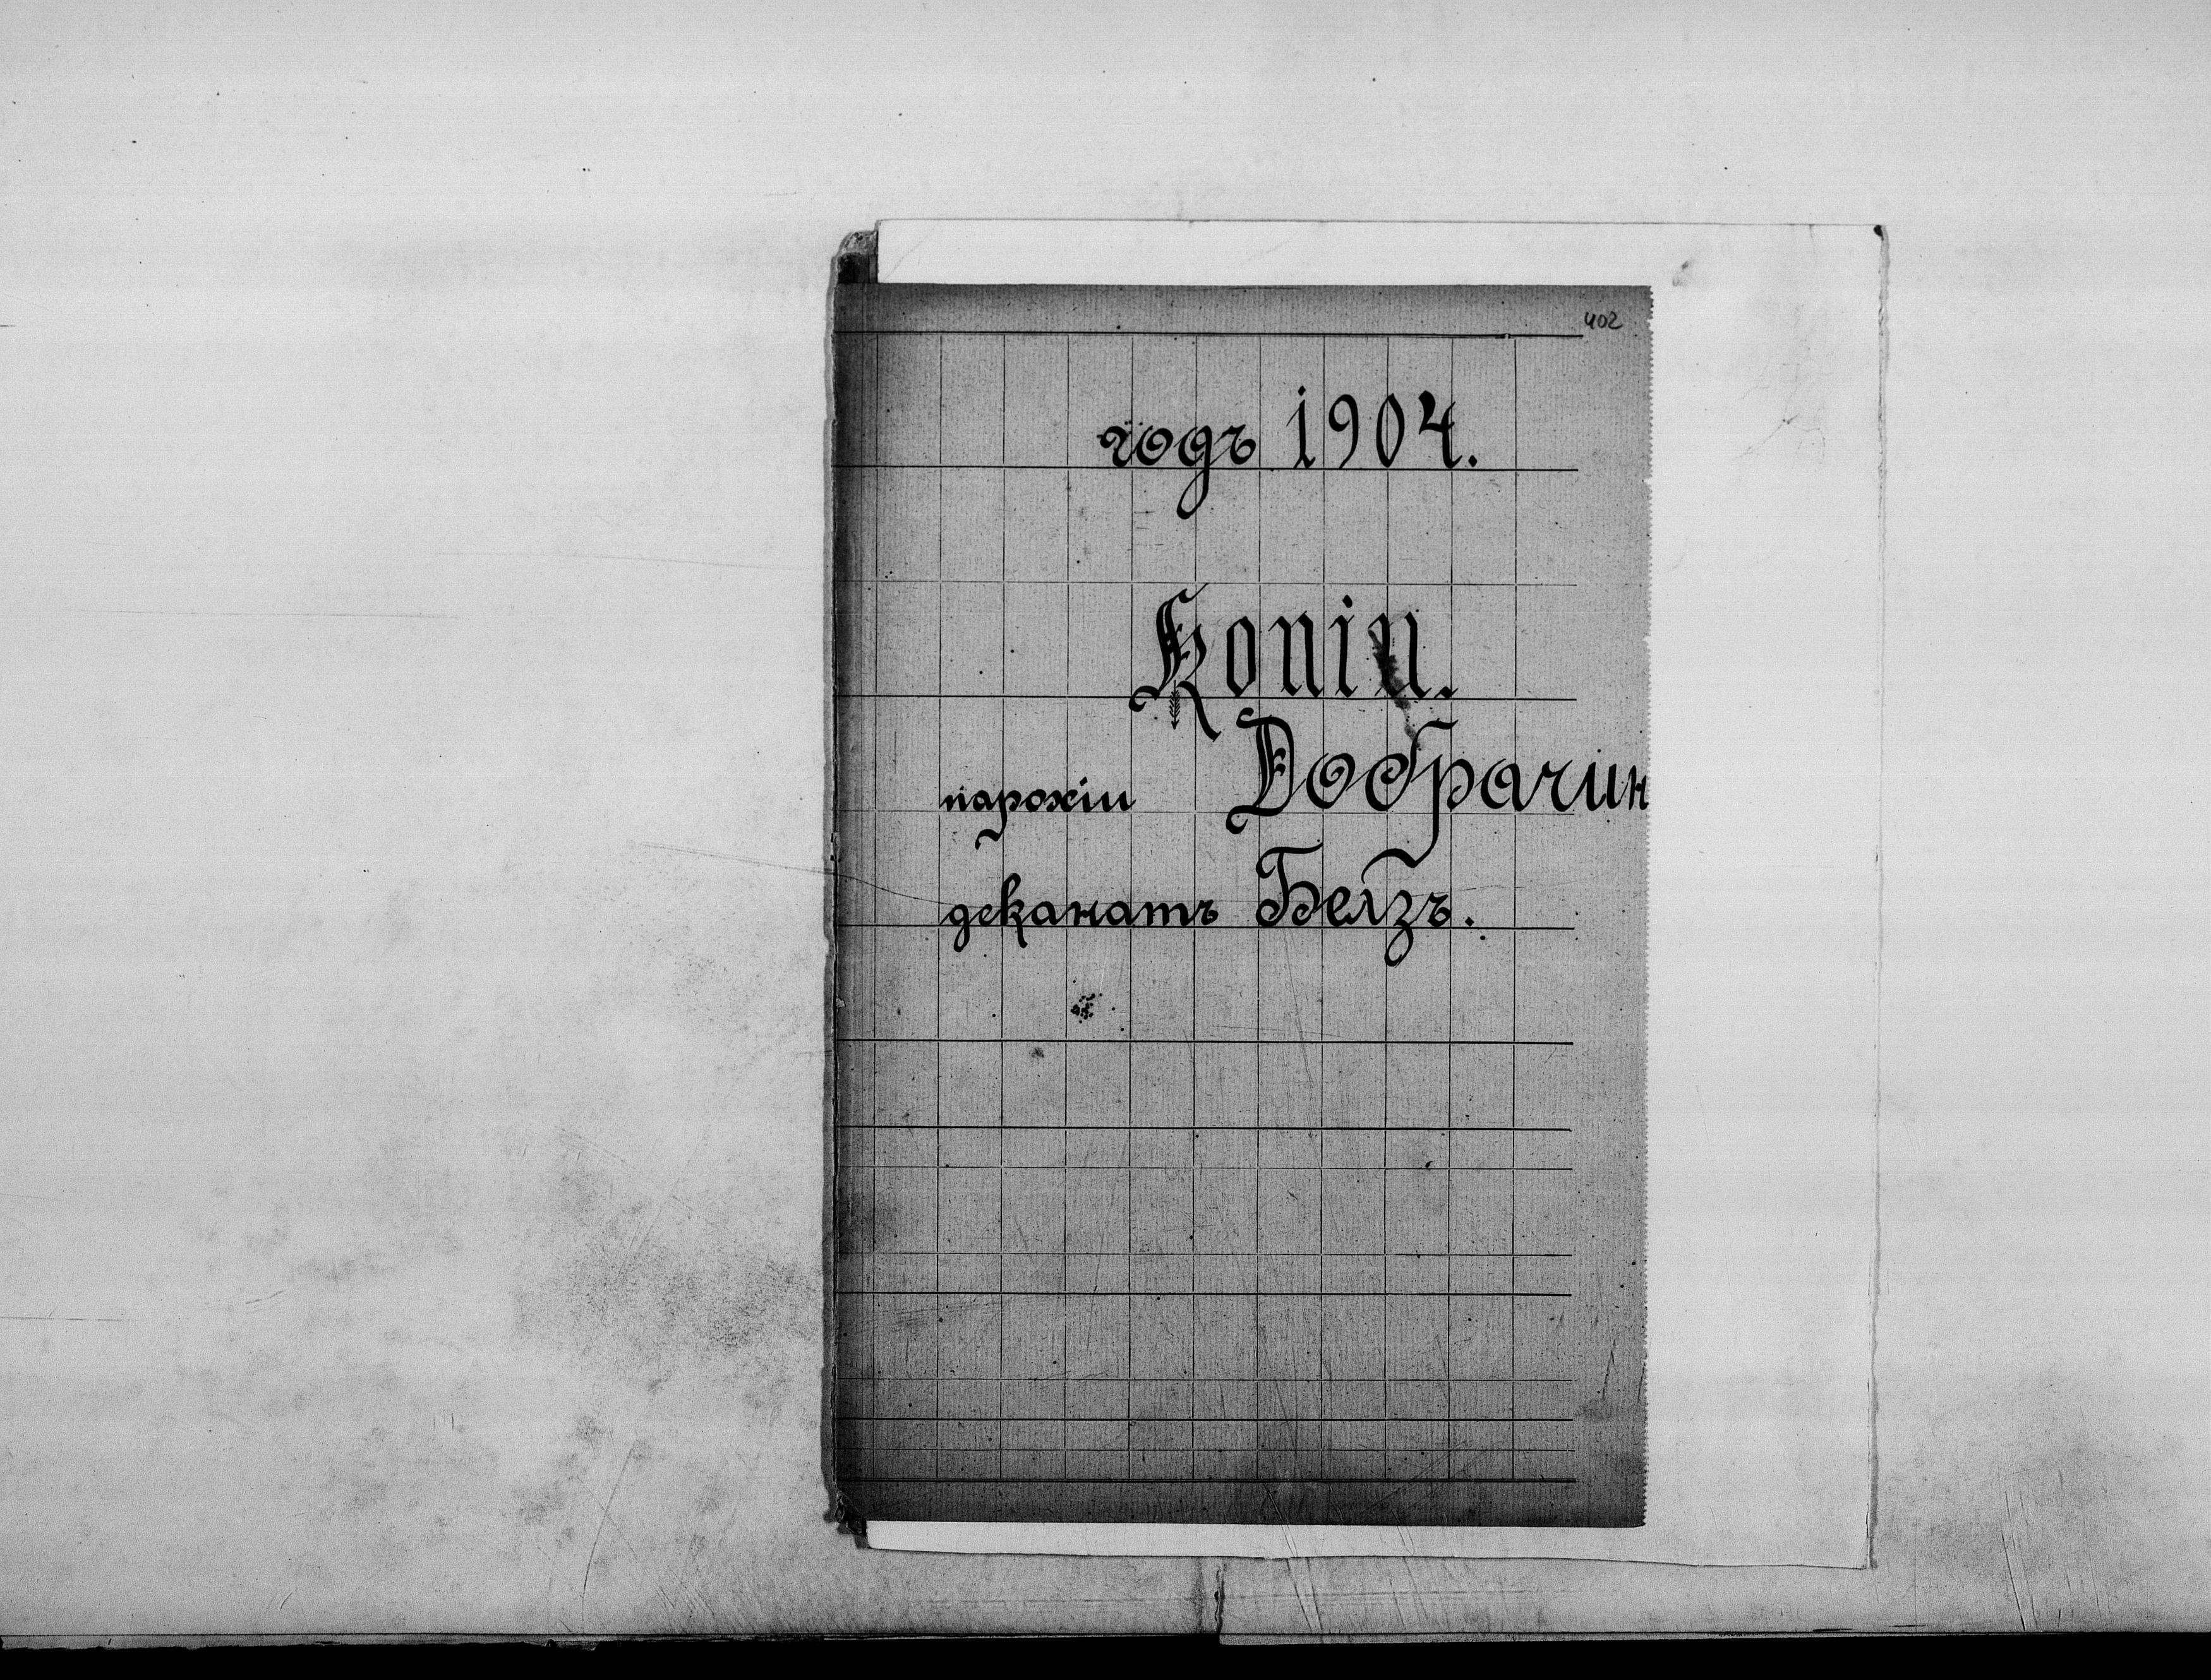 402
годъ 1904.
Копіи.
парохіи Добрачин
деканатъ Белзъ.